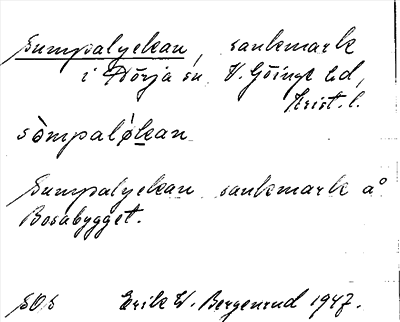 Sumpalyckan, sankmark
i Nörja sn V. Göinge hd,
Krist. l.
sòmpaløkan
Sumpalyckan sankmark å
Bosabygget.
SOS Erik W. Bergenrud 1947.